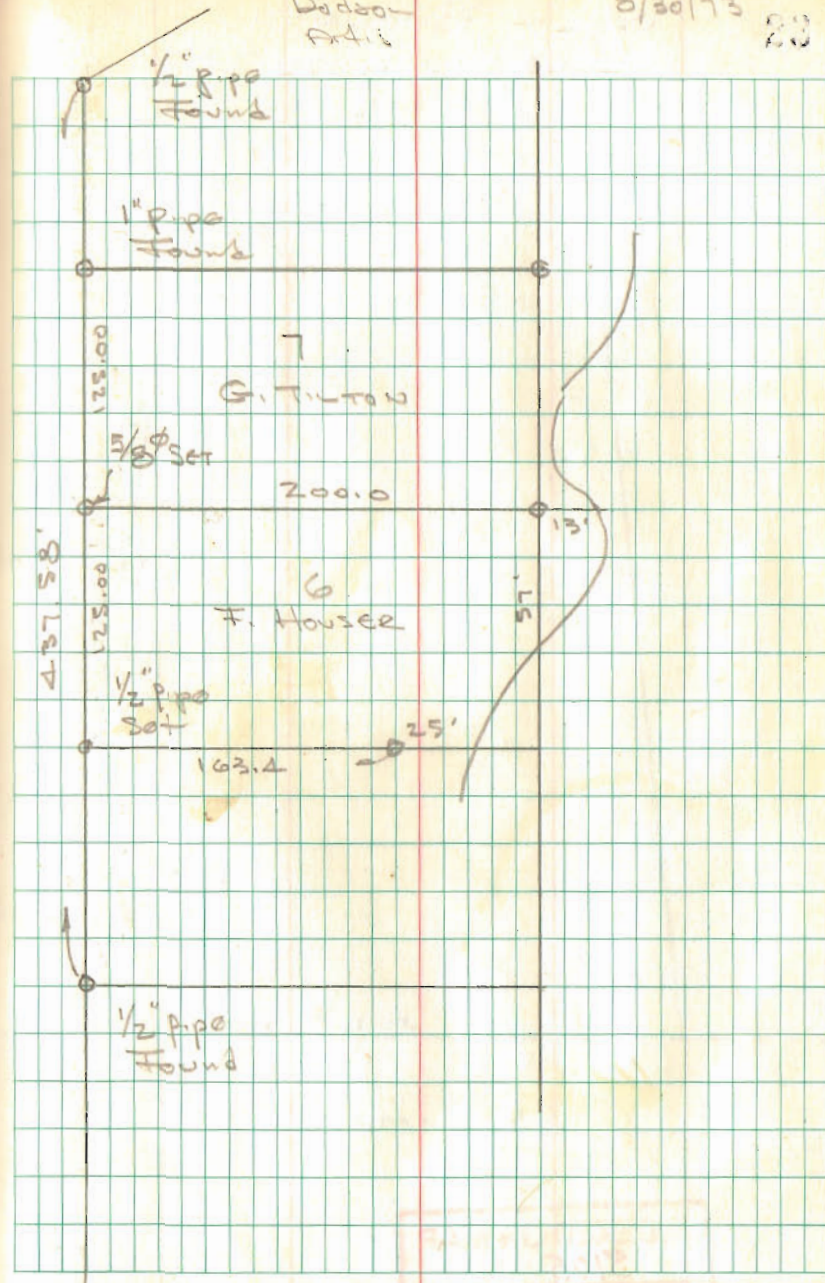 Dodson
23
1/2" pipe
Found
1" pipe
Found
125.00
7
G. TILTON
5/8"⌀ SET
200.0
13'
437.58'
125.00
6
F. HOUSER
57'
1/2" pipe
Set
25'
163.4
1/2" pipe
Found